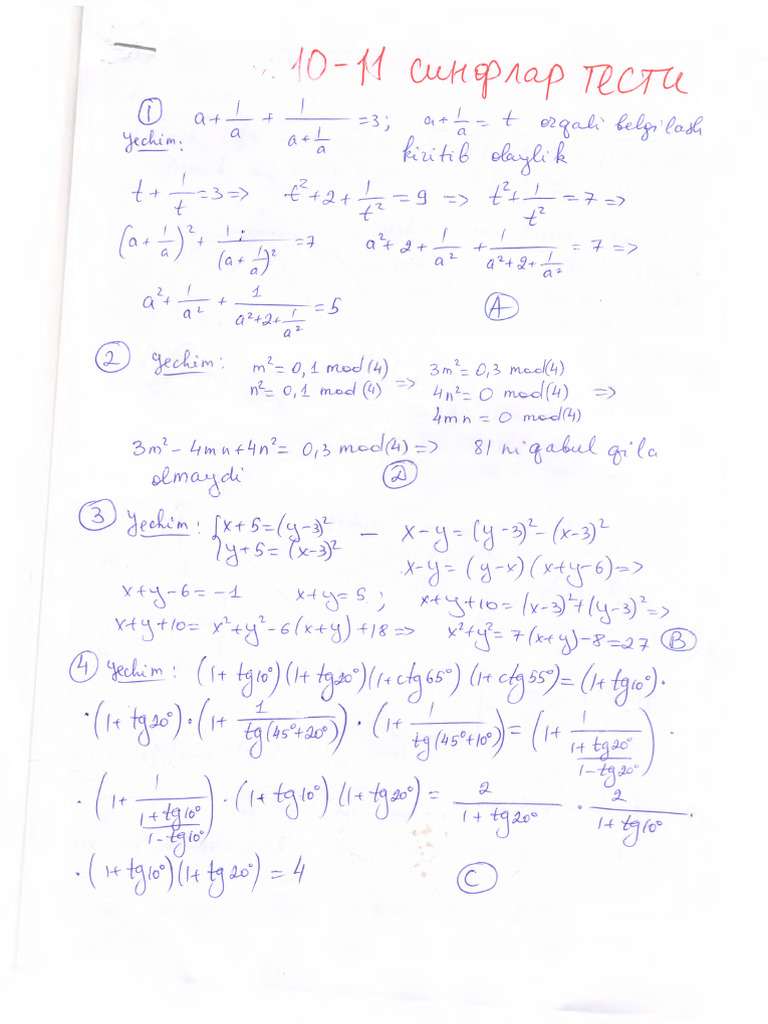 10-11 синфлар тести
① a + 1/a + 1/(a + 1/a) = 3; a + 1/a = t orqali belgilash
Yechim: kiritib olaylik
t + 1/t = 3 => t² + 2 + 1/t² = 9 => t² + 1/t² = 7 =>
(a + 1/a)² + 1/(a + 1/a)² = 7 a² + 2 + 1/a² + 1/(a² + 2 + 1/a²) = 7 =>
a² + 1/a² + 1/(a² + 2 + 1/a²) = 5 Ⓐ
② Yechim: m² = 0,1 mod(4) 3m² = 0,3 mod(4)
n² = 0,1 mod(4) => 4n² = 0 mod(4) =>
4mn = 0 mod(4)
3m² - 4mn + 4n² = 0,3 mod(4) => 81 ni qabul qila
olmaydi Ⓓ
③ Yechim: { x + 5 = (y-3)² — x - y = (y-3)² - (x-3)²
y + 5 = (x-3)² x - y = (y-x)(x+y-6) =>
x+y-6 = -1 x+y = 5; x+y+10 = (x-3)² + (y-3)² =>
x+y+10 = x² + y² - 6(x+y) + 18 => x² + y² = 7(x+y) - 8 = 27 Ⓑ
④ Yechim: (1 + tg10°)(1 + tg20°)(1 + ctg65°)(1 + ctg55°) = (1 + tg10°)·
·(1 + tg20°)·(1 + 1/tg(45°+20°))·(1 + 1/tg(45°+10°)) = (1 + 1/((1+tg20°)/(1-tg20°)))·
·(1 + 1/((1+tg10°)/(1-tg10°)))·(1 + tg10°)(1 + tg20°) = 2/(1 + tg20°)·2/(1 + tg10°)·
·(1 + tg10°)(1 + tg20°) = 4 Ⓒ